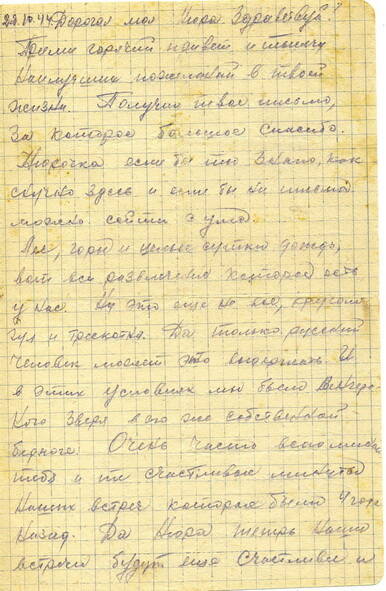 22.10.44. Дорогая моя Нюра Здравствуй!
Прими горячий привет и тысячу
наилучших пожеланий в твоей
жизни. Получил твое письмо,
за которое большое спасибо.
Нюрочка если бы ты знала, как
скучно здесь и если бы ни письма
можно сойти с ума.
Лес, горы и целые сутки дождь,
вот все развлечения которые есть
у нас. Но это еще не все, кругом
гул и трескотня. Да только русский
человек может это выдержать. И
в этих условиях мы бьем Венгерс
кого Зверя в его же собственной
берлоге. Очень часто вспоминаю
тебя и те счастливые минуты
наших встреч которые были 4 года
назад. Да Нюра теперь наши
встречи будут еще счастливее и